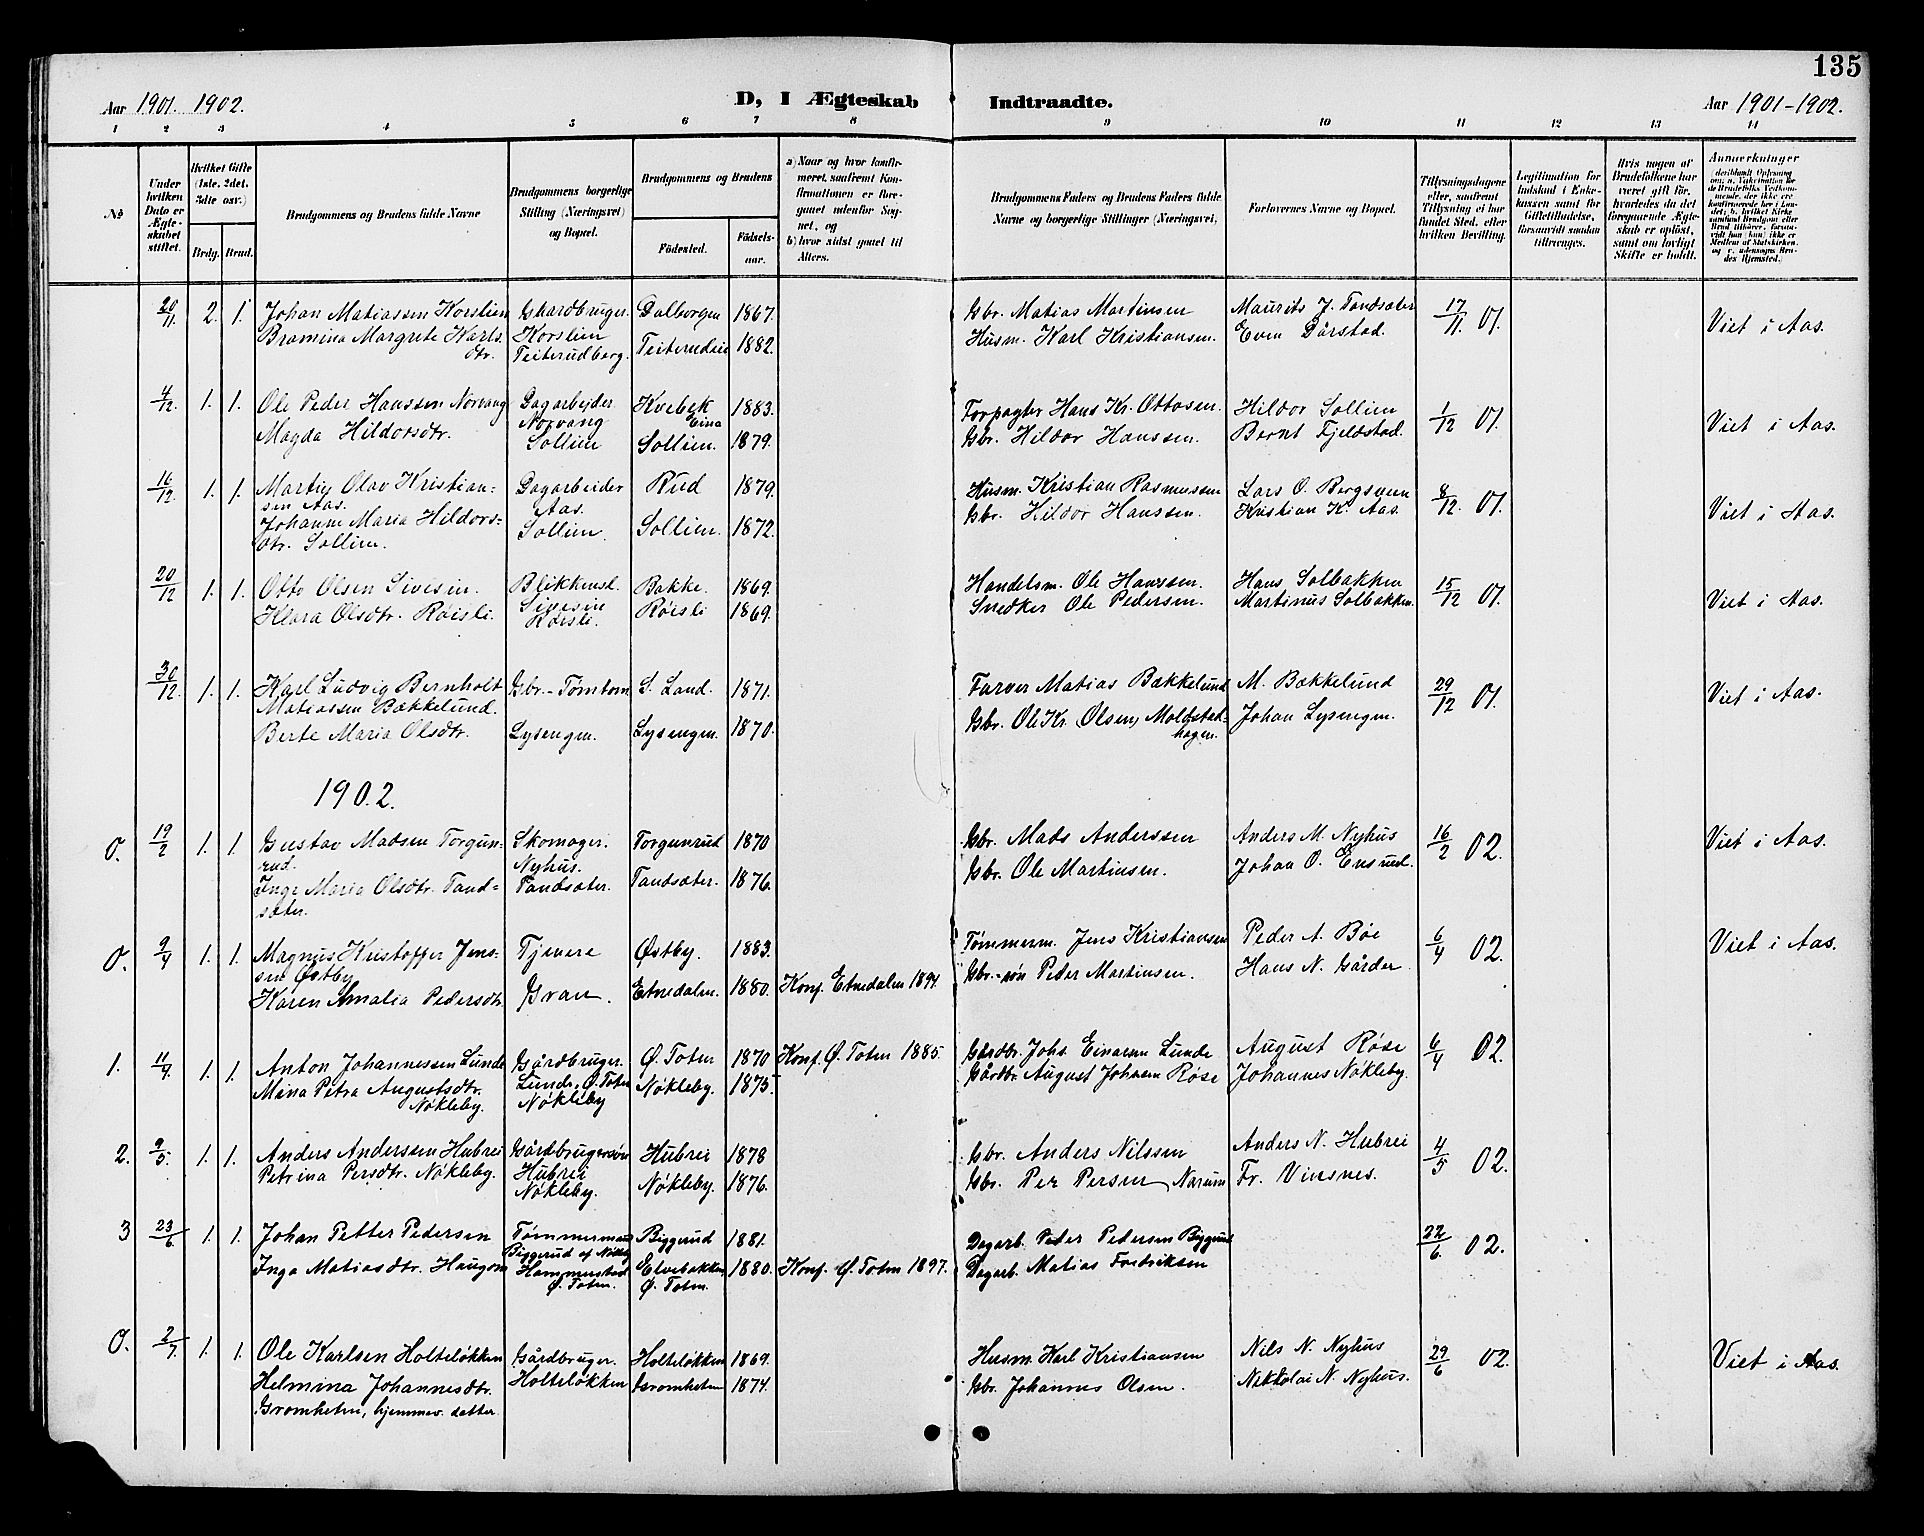 135
Aar 1901. 1902.
D, I Ægteskab Indtraadte.
Aar 1901-1902.
1 2 3 4 5 6 7 8 9 10 11 12 13 14
No
Under hvilken Dato er Ægteskabet stiftet.
Hvilket Gifte (1ste, 2det, 3die osv.)
Brdg. Brud.
Brudgommens og Brudens fulde Navne
Brudgommens borgerlige Stilling (Næringsvei) og Bopæl.
Brudgommens og Brudens
Fødested. Fødselsaar.
a) Naar og hvor konfirmeret, saafremt Konfirmationen er foregaaet udenfor Sognet, og
b) hvor sidst gaaet til Alters.
Brudgommens Faders og Brudens Faders fulde Navne og borgerlige Stillinger (Næringsvei)
Forlovernes Navne og Bopæl.
Tillysningsdagene eller, saafremt Tillysning ei har fundet Sted, efter hvilken Bevilling.
Legitimation for Indskud i Enkekassen samt for Giftetilladelse, forsaavidt saadan tiltrænges.
Hvis nogen af Brudefolkene har været gift før, hvorledes da det foregaaende Ægteskab er opløst, samt om lovligt Skifte er holdt.
Anmerkninger
20/11. 2. 1. Johan Matiassen Korslien Gaardbruger. Dalborgen 1867. Gbr. Matias Martinsen Maurits J. Tandsæter 17/11. 01. Viet i Aas.
Bramina Margrete Karlsdtr. Korslien Teiterudberg. Teiterudeie 1882. Husm. Karl Kristiansen. Even Dårstad.
4/12. 1. 1. Ole Peder Hanssen Norvang Dagarbejder Norvang Kvebek Eina 1883. Forpagter Hans Kr. Ottosen. Hildor Sollien 1/12 01. Viet i Aas.
Magda Hildorsdtr. Sollien Sollien. 1879. Gbr. Hildor Hanssen. Bernt Fjeldstad.
16/12. 1. 1. Martin Olav Kristiansen Aas. Dagarbeider Aas. Rud 1879. Husm. Kristian Rasmussen Lars O. Bergsveen 8/12. 01. Viet i Aas.
Johanne Maria Hildorsdtr. Sollien. Sollien. Sollien. 1872. Gbr. Hildor Hanssen. Kristian K. Aas.
20/12 1. 1. Otto Olsen Sivesin. Blikkensl. Sivesin Bakke. 1869. Handelsm. Ole Hanssen. Hans Solbakken 15/12 01. Viet i Aas.
Klara Olsdtr. Røisli. Røisli. Røisli 1869. Snedker Ole Pedersen. Martinus Solbakken.
30/12. 1. 1. Karl Ludvig Bernholt Matiassen Bækkelund. Gbr.-Tømtom S. Land. 1871. Farver Matias Bækkelund M. Bækkelund 29/12 01. Viet i Aas.
Berte Maria Olsdtr. Lysengen. Lysengen. 1870. Gbr. Ole Kr. Olsen, Moldstadhagen. Johan Lysengen.
1902.
0. 19/2 1. 1. Gustav Madsen Torgunrud. Skomager. Nyhus. Torgunrud 1870 Gbr. Mads Anderssen Anders M. Nyhus 16/2 02. Viet i Aas.
Inge Maria Olsdtr. Tandsæter. Tandsæter. Tandsæter. 1876. Gbr. Ole Martinsen. Johan O. Ensrud.
0. 9/4 1. 1. Magnus Kristoffer Jenssen Østby Tjenere Østby. 1883. Tømmerm. Jens Kristiansen Peder A. Bøe 6/4 02. Viet i Aas.
Karen Amalia Pedersdtr. Gran. Etnedalen. 1880. Konf. Etnedalen 1894. Gbr.-søn Peder Martinsen. Hans N. Gårder.
1. 11/4 1. 1. Anton Johannessen Lunde Gårdbruger. Lunde, Ø. Toten Ø. Toten 1870 Konf. Ø. Toten 1885. Gårdbr. Johs. Einarsen Lunde August Røse 6/4 02.
Mina Petra Augustsdtr. Nøkleby. Nøkleby Nøkleby. 1875. Gårdbr. August Johnsen Røse Johannes Nøkleby.
2. 9/5. 1. 1. Anders Anderssen Hubrei Gårdbrugersøn Hubrei Hubrei 1878 Gbr. Anders Nilssen Anders N. Hubrei 4/5 02.
Petrina Persdtr. Nøkleby. Nøkleby. Nøkleby. 1876. Gbr. Per Persen Narum Fr. Vinsnes.
3 23/6. 1. 1. Johan Petter Pedersen Tømmermand Biggerud af Nøkleby Biggerud 1881. Dagarb. Peder Pedersen Bygerud 22/6. 02.
Inga Matiasdtr. Haugen Hammerstad Ø. Toten. Elvebakken Ø. Toten. 1880. Konf. Ø. Toten 1897. Dagarb. Matias Fredriksen
0. 2/7. 1. 1. Ole Karlsen Holteløkken Gårdbruger. Holteløkken 1869. Husm. Karl Kristiansen Nils N. Nyhus 29/6 02. Viet i Aas.
Helmina Johannesdtr. Gromheten, hjemmev. datter. Holteløkken Gromheten 1874. Gbr. Johannes Olsen. Nikkolai N. Nyhus.